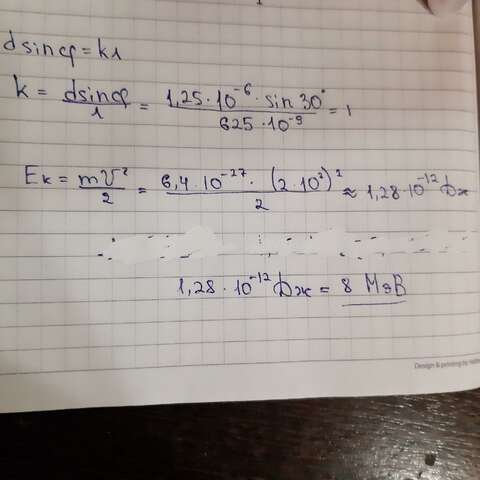 d sin φ = kλ
k = d sin φ / λ = 1,25 · 10⁻⁶ · sin 30° / 625 · 10⁻⁹ = 1
Eк = mV² / 2 = 6,4 · 10⁻²⁷ · (2 · 10⁷)² / 2 ≈ 1,28 · 10⁻¹² Дж
1,28 · 10⁻¹² Дж = 8 МэВ